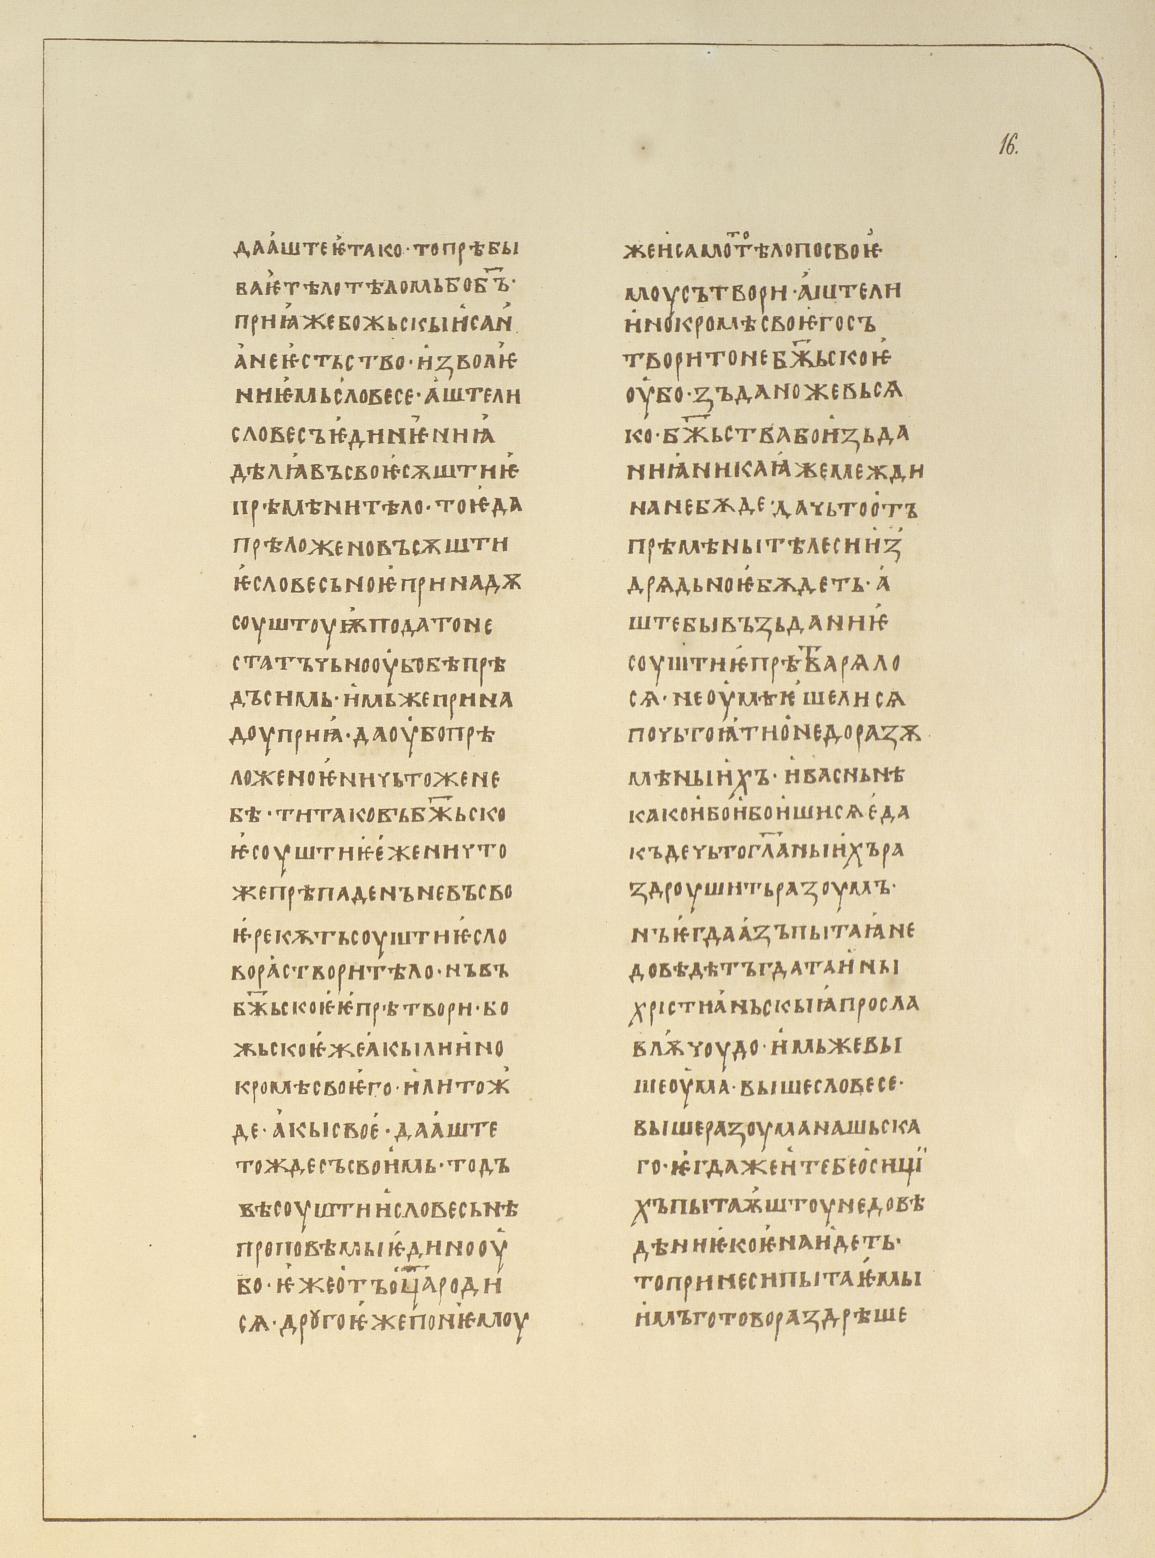 16.
дааштеѥтако·топрѣбы
ваѥтѣлотѣломьбобъ҃·
приꙗжебожьскыисаи
анеѥстьство·изволѥ
ниѥмьсловесе·аштели
словесъѥдинѥниꙗ
дѣлꙗвъсвоѥсѫштиѥ
прѣмѣнитѣло·тоѥда
прѣложеновъсѫшти
ѥсловесьноѥпринадѫ
соуштоуѭподатоне
статъчьнооубобѣпрѣ
дъсимь·имьжеприна
доуприꙗ·даоубопрѣ
ложеноѥничьтожене
бѣ·титаковъбж҃ьско
ѥсоуштиѥеженичто
жепрѣпаденъневъсво
ѥрекѫтьсоуштиѥсло
ворастворитѣло·нъвъ
бж҃ьскоѥѥпрѣтвори·бо
жьскоѥжеакылиино
кромѣсвоѥго·илитож
де·акысвое·дааште
тождесъсвоимь·тодъ
вѣсоуштиисловесьнѣ
проповѣмыѥдинооу
бо·ѥжеотъоц҃ароди
сѧ·дрꙋгоѥжепониѥмоу
жеисамототѣлопосвоѥ
моусътвори·аштели
инокромѣсвоѥгосъ
творитонебж҃ьскоѥ
оубо·зъданожевьсѧ
ко·бж҃ьствабоизьда
ниꙗникаꙗжемежди
нанебѫде·дачьтоотъ
прѣмѣнытѣлесниз
дрѧдьноѥбѫдеть·а
штебывъзьданиѥ
соуштиѥпрѣтварѧло
сѧ·неоумѣѥшелисѧ
почьгоꙗтионедоразѫ
мѣныихъ·ивасньнѣ
какоибоибоишисѧеда
къдечьтогл҃аныихъра
здроушитьразоумъ·
нъѥгдаазъпытаꙗне
довѣдѣтъгдатаины
христианьскыꙗпросла
влѭчоудо·имьжевы
шеоума·вышесловесе·
вышеразоуманашьска
го·ѥгдажеитебеосиці
хъпытаѭштоунедовѣ
дѣниѥкоѥнаидеть·
топринесипытаѥмы
имъготовораздрѣше